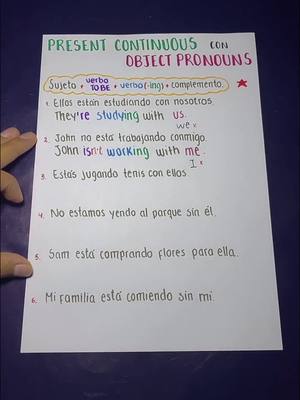 PRESENT CONTINUOUS CON
OBJECT PRONOUNS
Sujeto + verbo TO BE + verbo(-ing) + complemento.
1. Ellos están estudiando con nosotros.
They're studying with us.
we x
2. John no está trabajando conmigo.
John isn't working with me.
I x
3. Estás jugando tenis con ellos.
4. No estamos yendo al parque sin él.
5. Sam está comprando flores para ella.
6. Mi familia está comiendo sin mí.